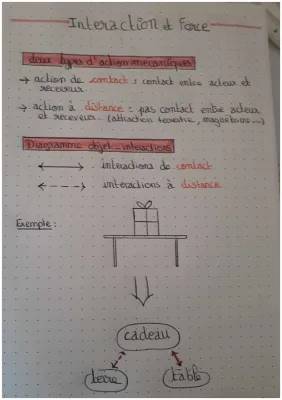 Interaction et Force
deux types d'action mécaniques
→ action de contact : contact entre acteur et
receveur
→ action à distance : pas contact entre acteur
et receveur (attraction terrestre, magnétisme...)
Diagramme objet-interactions
interactions de contact
interactions à distance
Exemple :
cadeau
terre
table